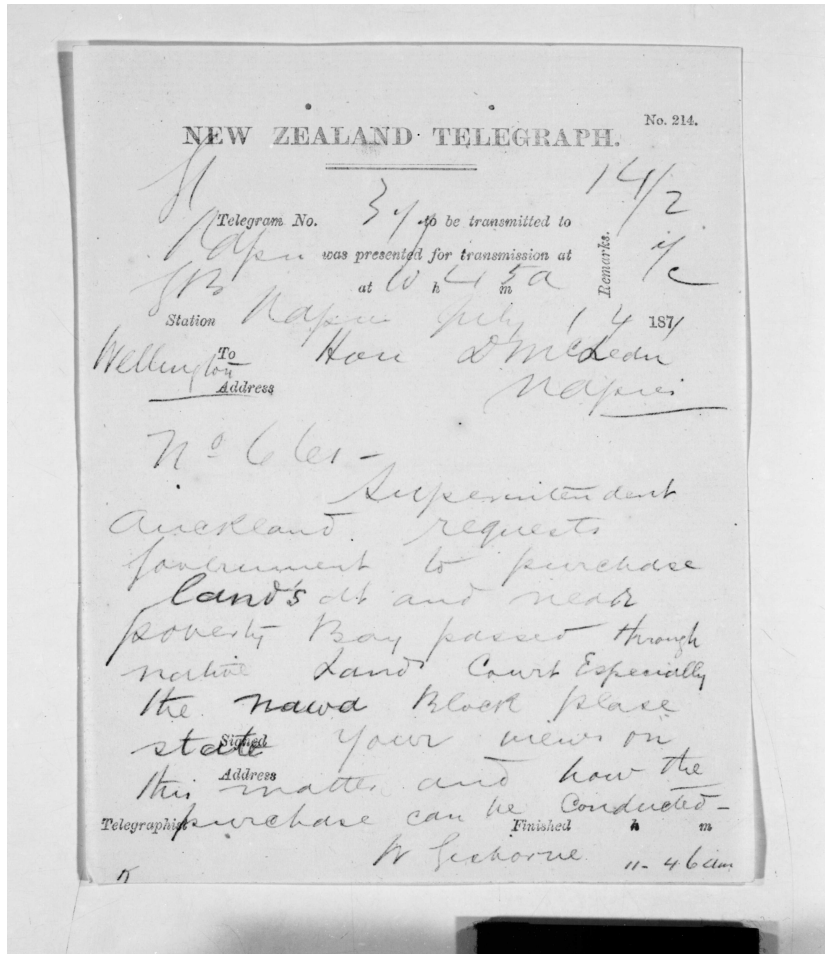 No. 214.
NEW ZEALAND TELEGRAPH.
14/2
Telegram No. to be transmitted to
Napier was presented for transmission at
Remarks.
at 10 h 45 m a
Station Napier July 14 1871
Wellington To Hon D McLean
Address Napier
No 661 -
Superintendent
Auckland requests
Government to purchase
land's at and near
poverty Bay passed through
native Land Court Especially
the Block please
Signed
state your views on
Address
this matter and how the
purchase can be conducted -
Telegraphist Finished h m
W Gisborne 11-46 am